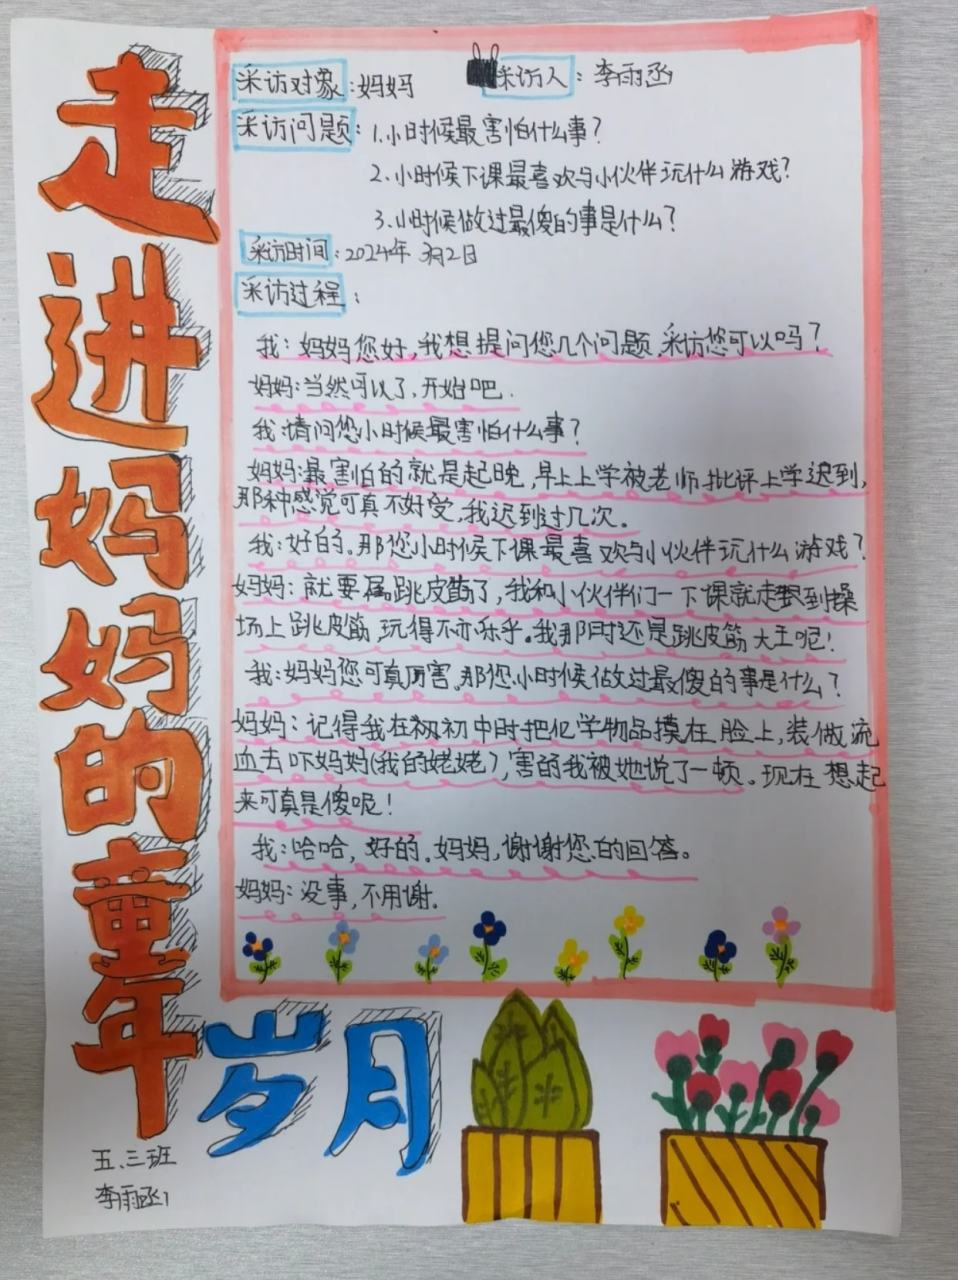 走进妈妈的童年
岁月
采访对象：妈妈 采访人：李雨丞
采访问题：1.小时候最害怕什么事？
2.小时候下课最喜欢与小伙伴玩什么游戏？
3.小时候做过最傻的事是什么？
采访时间：2024年3月2日
采访过程：
我：妈妈您好，我想提问您几个问题，采访您可以吗？
妈妈：当然可以了，开始吧．
我：请问您小时候最害怕什么事？
妈妈：最害怕的就是起晚，早上上学被老师批评上学迟到，
那种感觉可真不好受，我迟到过几次。
我：好的。那您小时候下课最喜欢与小伙伴玩什么游戏？
妈妈：就要属跳皮筋了，我和小伙伴们一下课就走到操
场上跳皮筋，玩得不亦乐乎。我那时还是跳皮筋大王呢！
我：妈妈您可真厉害。那您小时候做过最傻的事是什么？
妈妈：记得我在初中时把化学物品摸在脸上，装做流
血去吓妈妈(我的姥姥)，害的我被她说了一顿。现在想起
来可真是傻呢！
我：哈哈，好的。妈妈，谢谢您的回答。
妈妈：没事，不用谢．
五、三班
李雨丞